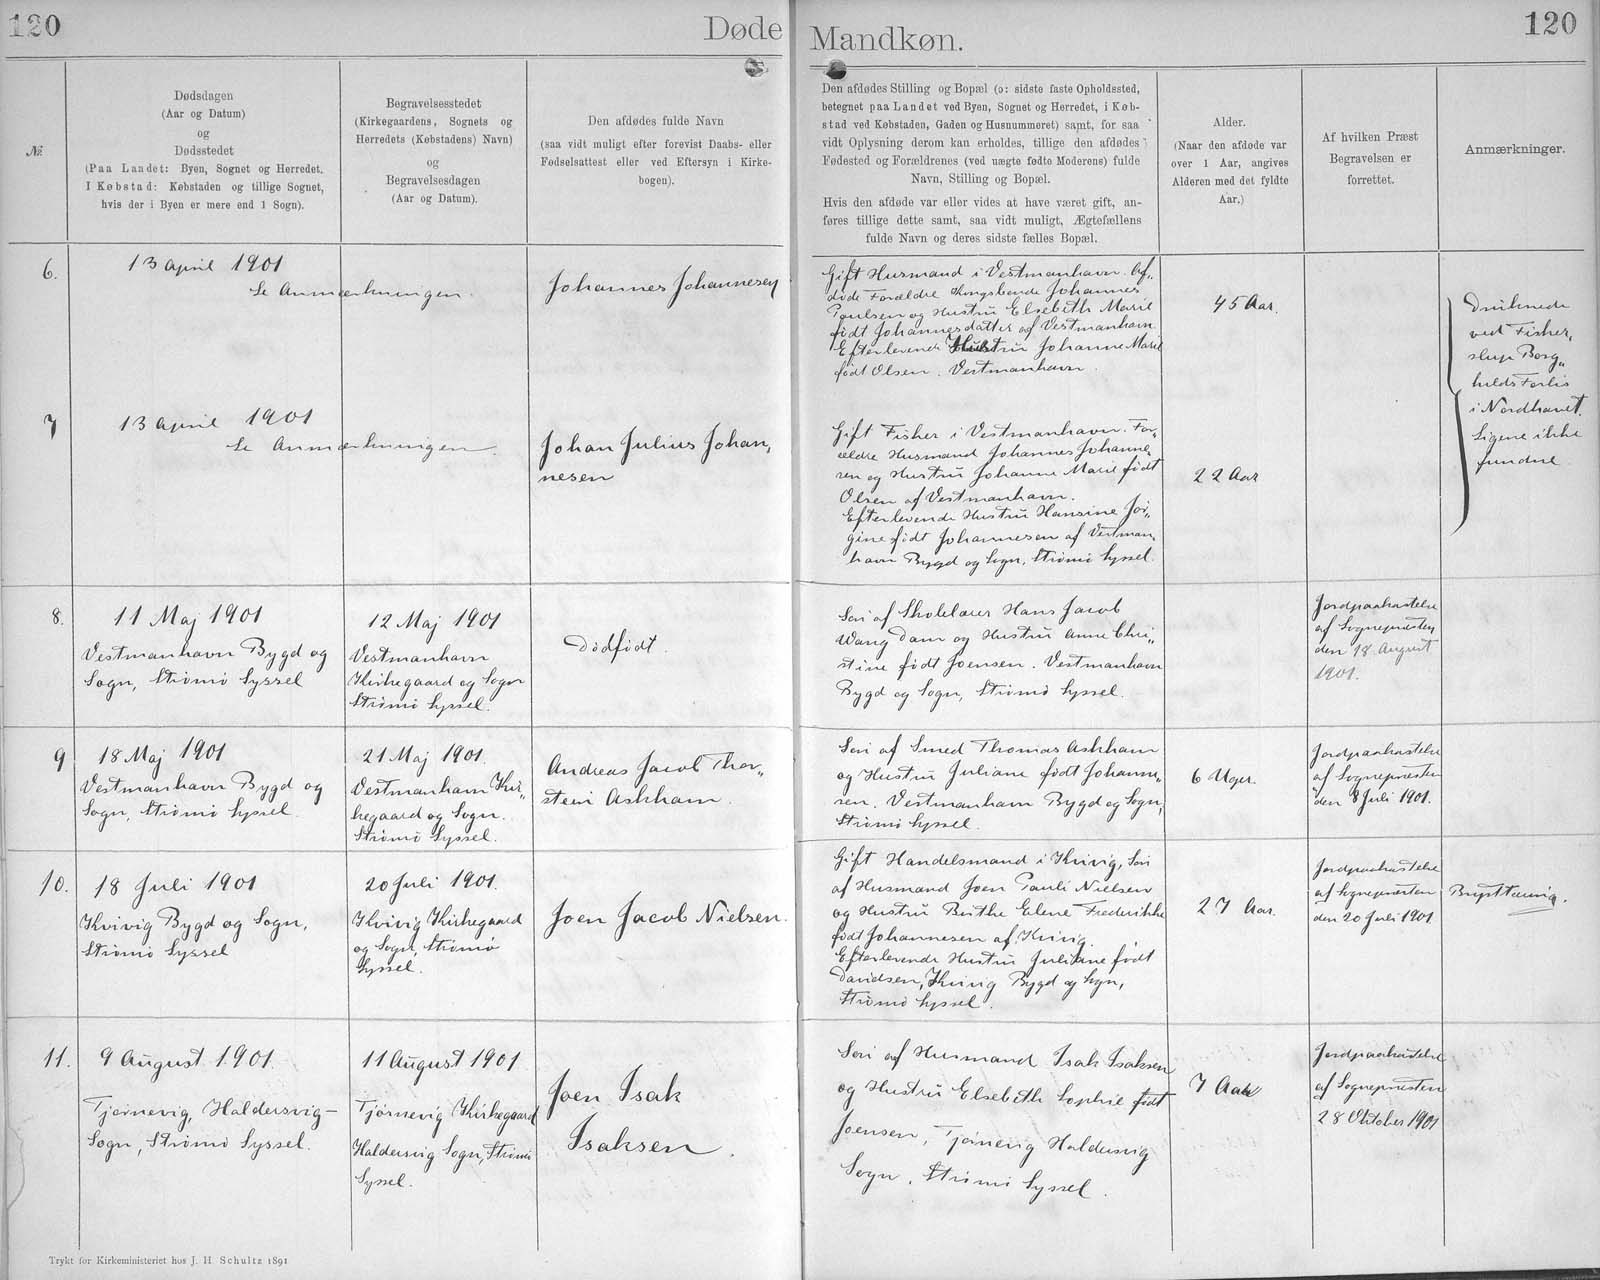 120
Døde
Mandkøn.
120
№
Dødsdagen
(Aar og Datum)
og
Dødsstedet
(Paa Landet: Byen, Sognet og Herredet.
I Købstad: Købstaden og tillige Sognet,
hvis der i Byen er mere end 1 Sogn).
Begravelsesstedet
(Kirkegaardens, Sognets og
Herredets (Købstadens) Navn)
og
Begravelsesdagen
(Aar og Datum).
Den afdødes fulde Navn
(saa vidt muligt efter forevist Daabs- eller
Fødselsattest eller ved Eftersyn i Kirke-
bogen).
Den afdødes Stilling og Bopæl (ɔ: sidste faste Opholdssted,
betegnet paa Landet ved Byen, Sognet og Herredet, i Køb-
stad ved Købstaden, Gaden og Husnummeret) samt, for saa
vidt Oplysning derom kan erholdes, tillige den afdødes
Fødested og Forældrenes (ved uægte fødte Moderens) fulde
Navn, Stilling og Bopæl.
Hvis den afdøde var eller vides at have været gift, an-
føres tillige dette samt, saa vidt muligt, Ægtefællens
fulde Navn og deres sidste fælles Bopæl.
Alder.
(Naar den afdøde var
over 1 Aar, angives
Alderen med det fyldte
Aar.)
Af hvilken Præst
Begravelsen er
forrettet.
Anmærkninger.
6.
13 april 1901
Se Anmærkningen.
Johannes Johannesen
Gift Husmand i Vestmanhavn. Af-
døde Forældre Kongsbonde Johannes
Poulsen og Hustru Elsebeth Marie
født Johannesdatter af Vestmanhavn
Efterlevende Hustru Johanne Marie
født Olsen. Vestmanhavn.
45 Aar.
Druknede
ved Fisker-
slup Borg-
hilds Forlis
i Nordhavet.
Ligene ikke
fundne
7
13 april 1901
Se Anmærkningen.
Johan Julius Johan-
nesen
Gift Fisker i Vestmanhavn. For-
ældre Husmand Johannes Johanne-
sen og Hustru Johanne Marie født
Olsen af Vestmanhavn.
Efterlevende Hustru Hansine Jør-
gine født Johannesen af Vestman-
havn Bygd og Sogn, Strømø Syssel.
22 Aar
8.
11 Maj 1901
Vestmanhavn Bygd og
Sogn, Strømø Syssel
12 Maj 1901
Vestmanhavn
Kirkegaard og Sogn
Strømø Syssel.
Dødfødt.
Søn af Skolelærer Hans Jacob
Wang Dam og Hustru Anne Chri-
stine født Joensen. Vestmanhavn
Bygd og Sogn, Strømø Syssel.
Jordpaakastelse
af Sognepræsten
den 18 August
1901.
9
18 Maj 1901
Vestmanhavn Bygd og
Sogn, Strømø Syssel.
21 Maj 1901.
Vestmanhavn Kir-
kegaard og Sogn.
Strømø Syssel.
Andreas Jacob Thor-
stein Askham.
Søn af Smed Thomas Askham
og Hustru Juliane født Johanne-
sen. Vestmanhavn Bygd og Sogn,
Strømø Syssel.
6 Uger.
Jordpaakastelse
af Sognepræsten
den 8 Juli 1901.
10.
18 Juli 1901
Kvivig Bygd og Sogn,
Strømø Syssel
20 Juli 1901.
Kvivig Kirkegaard
og Sogn, Strømø
Syssel.
Joen Jacob Nielsen.
Gift Handelsmand i Kvivig, Søn
af Husmand Joen Pauli Nielsen
og Hustru Birthe Elene Frederikke
født Johannesen af Kvivig.
Efterlevende Hustru Juliane født
Davidsen, Kvivig Bygd og Sogn,
Strømø Syssel.
27 Aar.
Jordpaakastelse
af Sognepræsten
den 20 Juli 1901
Brysttæring.
11.
9 August 1901
Tjørnevig, Haldersvig-
Sogn, Strømø Syssel.
11 August 1901
Tjørnevig Kirkegaard
Haldersvig Sogn, Strømø
Syssel.
Joen Isak
Isaksen.
Søn af Husmand Isak Isaksen
og Hustru Elsebeth Sophie født
Joensen, Tjørnevig Haldersvig
Sogn, Strømø Syssel.
7 Aar
Jordpaakastelse
af Sognepræsten
28 Oktober 1901
Trykt for Kirkeministeriet hos J. H. Schultz 1891